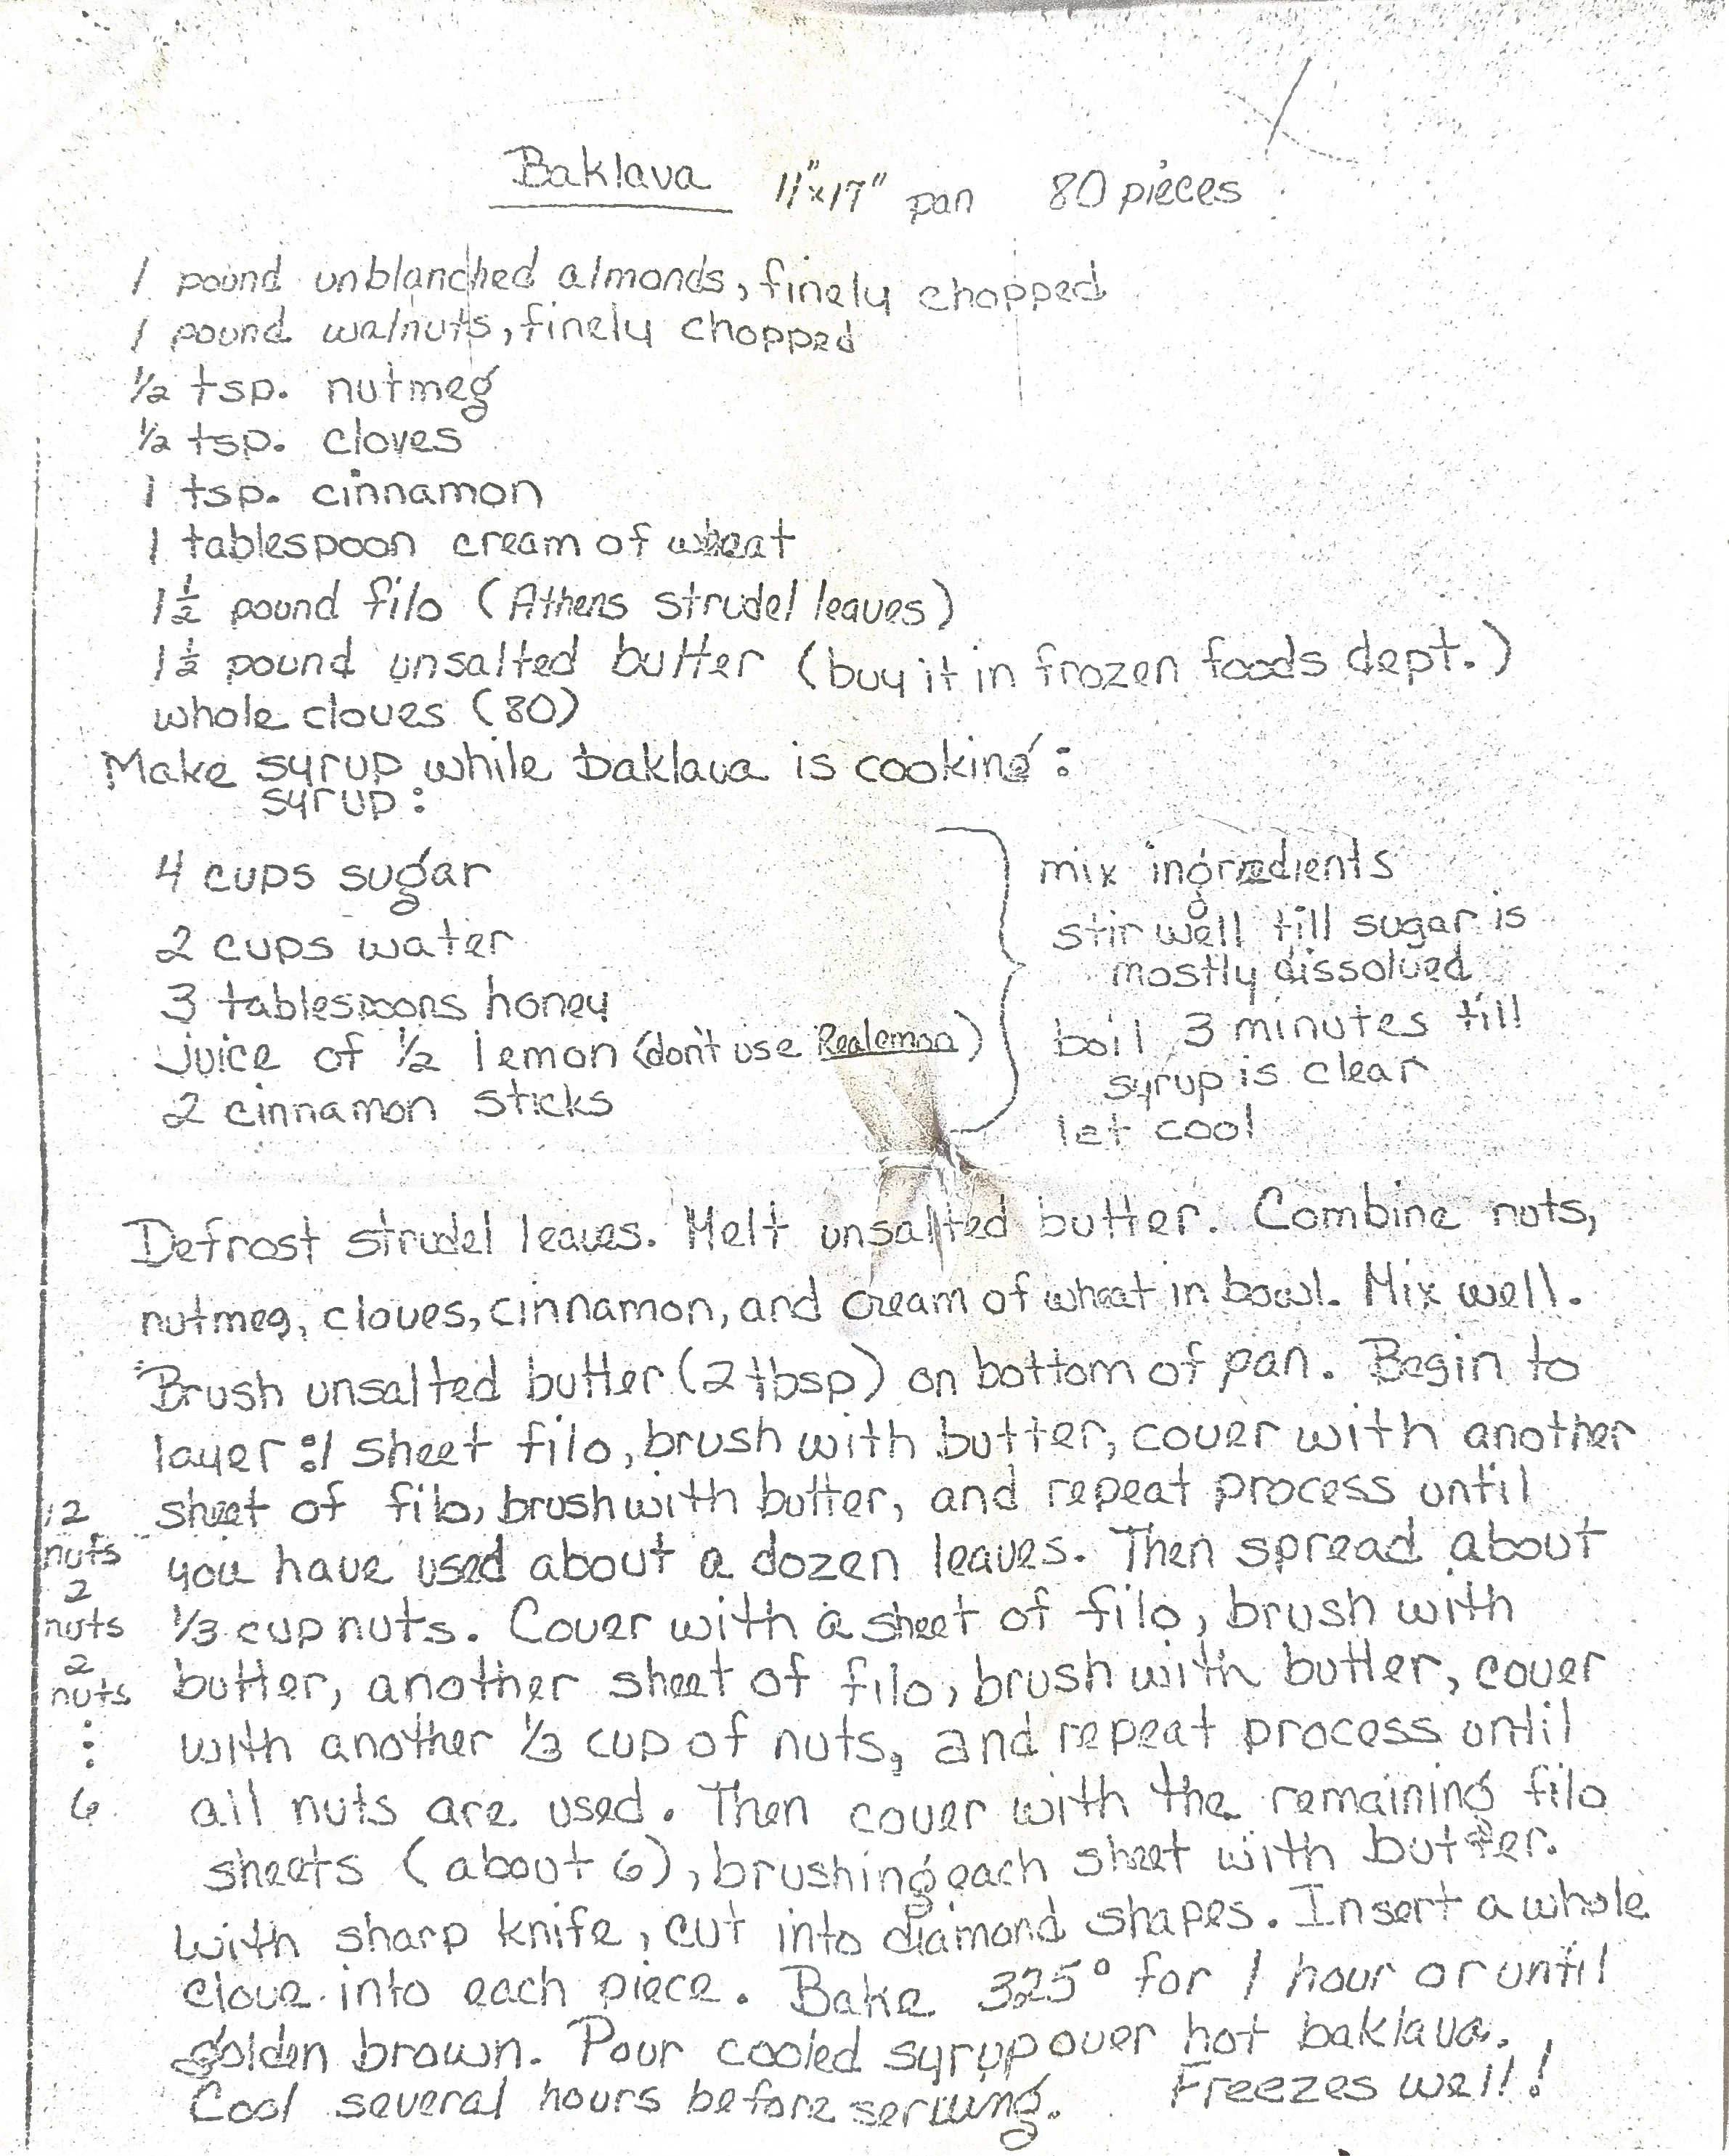 Baklava 11"x17" pan 80 pieces
1 pound unblanched almonds, finely chopped
1 pound walnuts, finely chopped
1/2 tsp. nutmeg
1/2 tsp. cloves
1 tsp. cinnamon
1 tablespoon cream of wheat
1 1/2 pound filo (Athens strudel leaves)
1 1/2 pound unsalted butter (buy it in frozen foods dept.)
whole cloves (80)
Make syrup while baklava is cooking:
syrup:
4 cups sugar
2 cups water
3 tablespoons honey
juice of 1/2 lemon (don't use Realemon)
2 cinnamon sticks
mix ingredients
stir well till sugar is
mostly dissolved
boil 3 minutes till
syrup is clear
let cool
Defrost strudel leaves. Melt unsalted butter. Combine nuts,
nutmeg, cloves, cinnamon, and cream of wheat in bowl. Mix well.
Brush unsalted butter (2 tbsp) on bottom of pan. Begin to
layer: 1 sheet filo, brush with butter, cover with another
sheet of filo, brush with butter, and repeat process until
you have used about a dozen leaves. Then spread about
1/3 cup nuts. Cover with a sheet of filo, brush with
butter, another sheet of filo, brush with butter, cover
with another 1/3 cup of nuts, and repeat process until
all nuts are used. Then cover with the remaining filo
sheets (about 6), brushing each sheet with butter.
With sharp knife, cut into diamond shapes. Insert a whole
clove into each piece. Bake 325° for 1 hour or until
golden brown. Pour cooled syrup over hot baklava.
Cool several hours before serving. Freezes well!
12
nuts
2
nuts
2
nuts
⋮
6